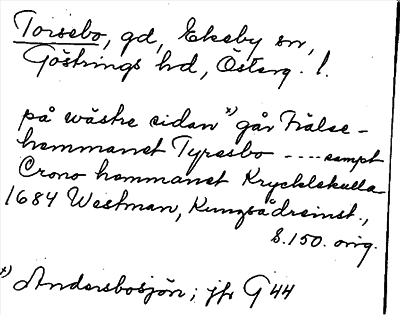 Torsebo, gd, Ekeby sn,
Göstrings hd, Österg. l.
på wästre sidan x) går Frälse-
hemmanet Tyresbo ---- sampt
Crono hemmanet Krycklekulla
1684 Westman, Kungsådreinst.,
s. 150. orig.
x) Andersbosjön; jfr G 44